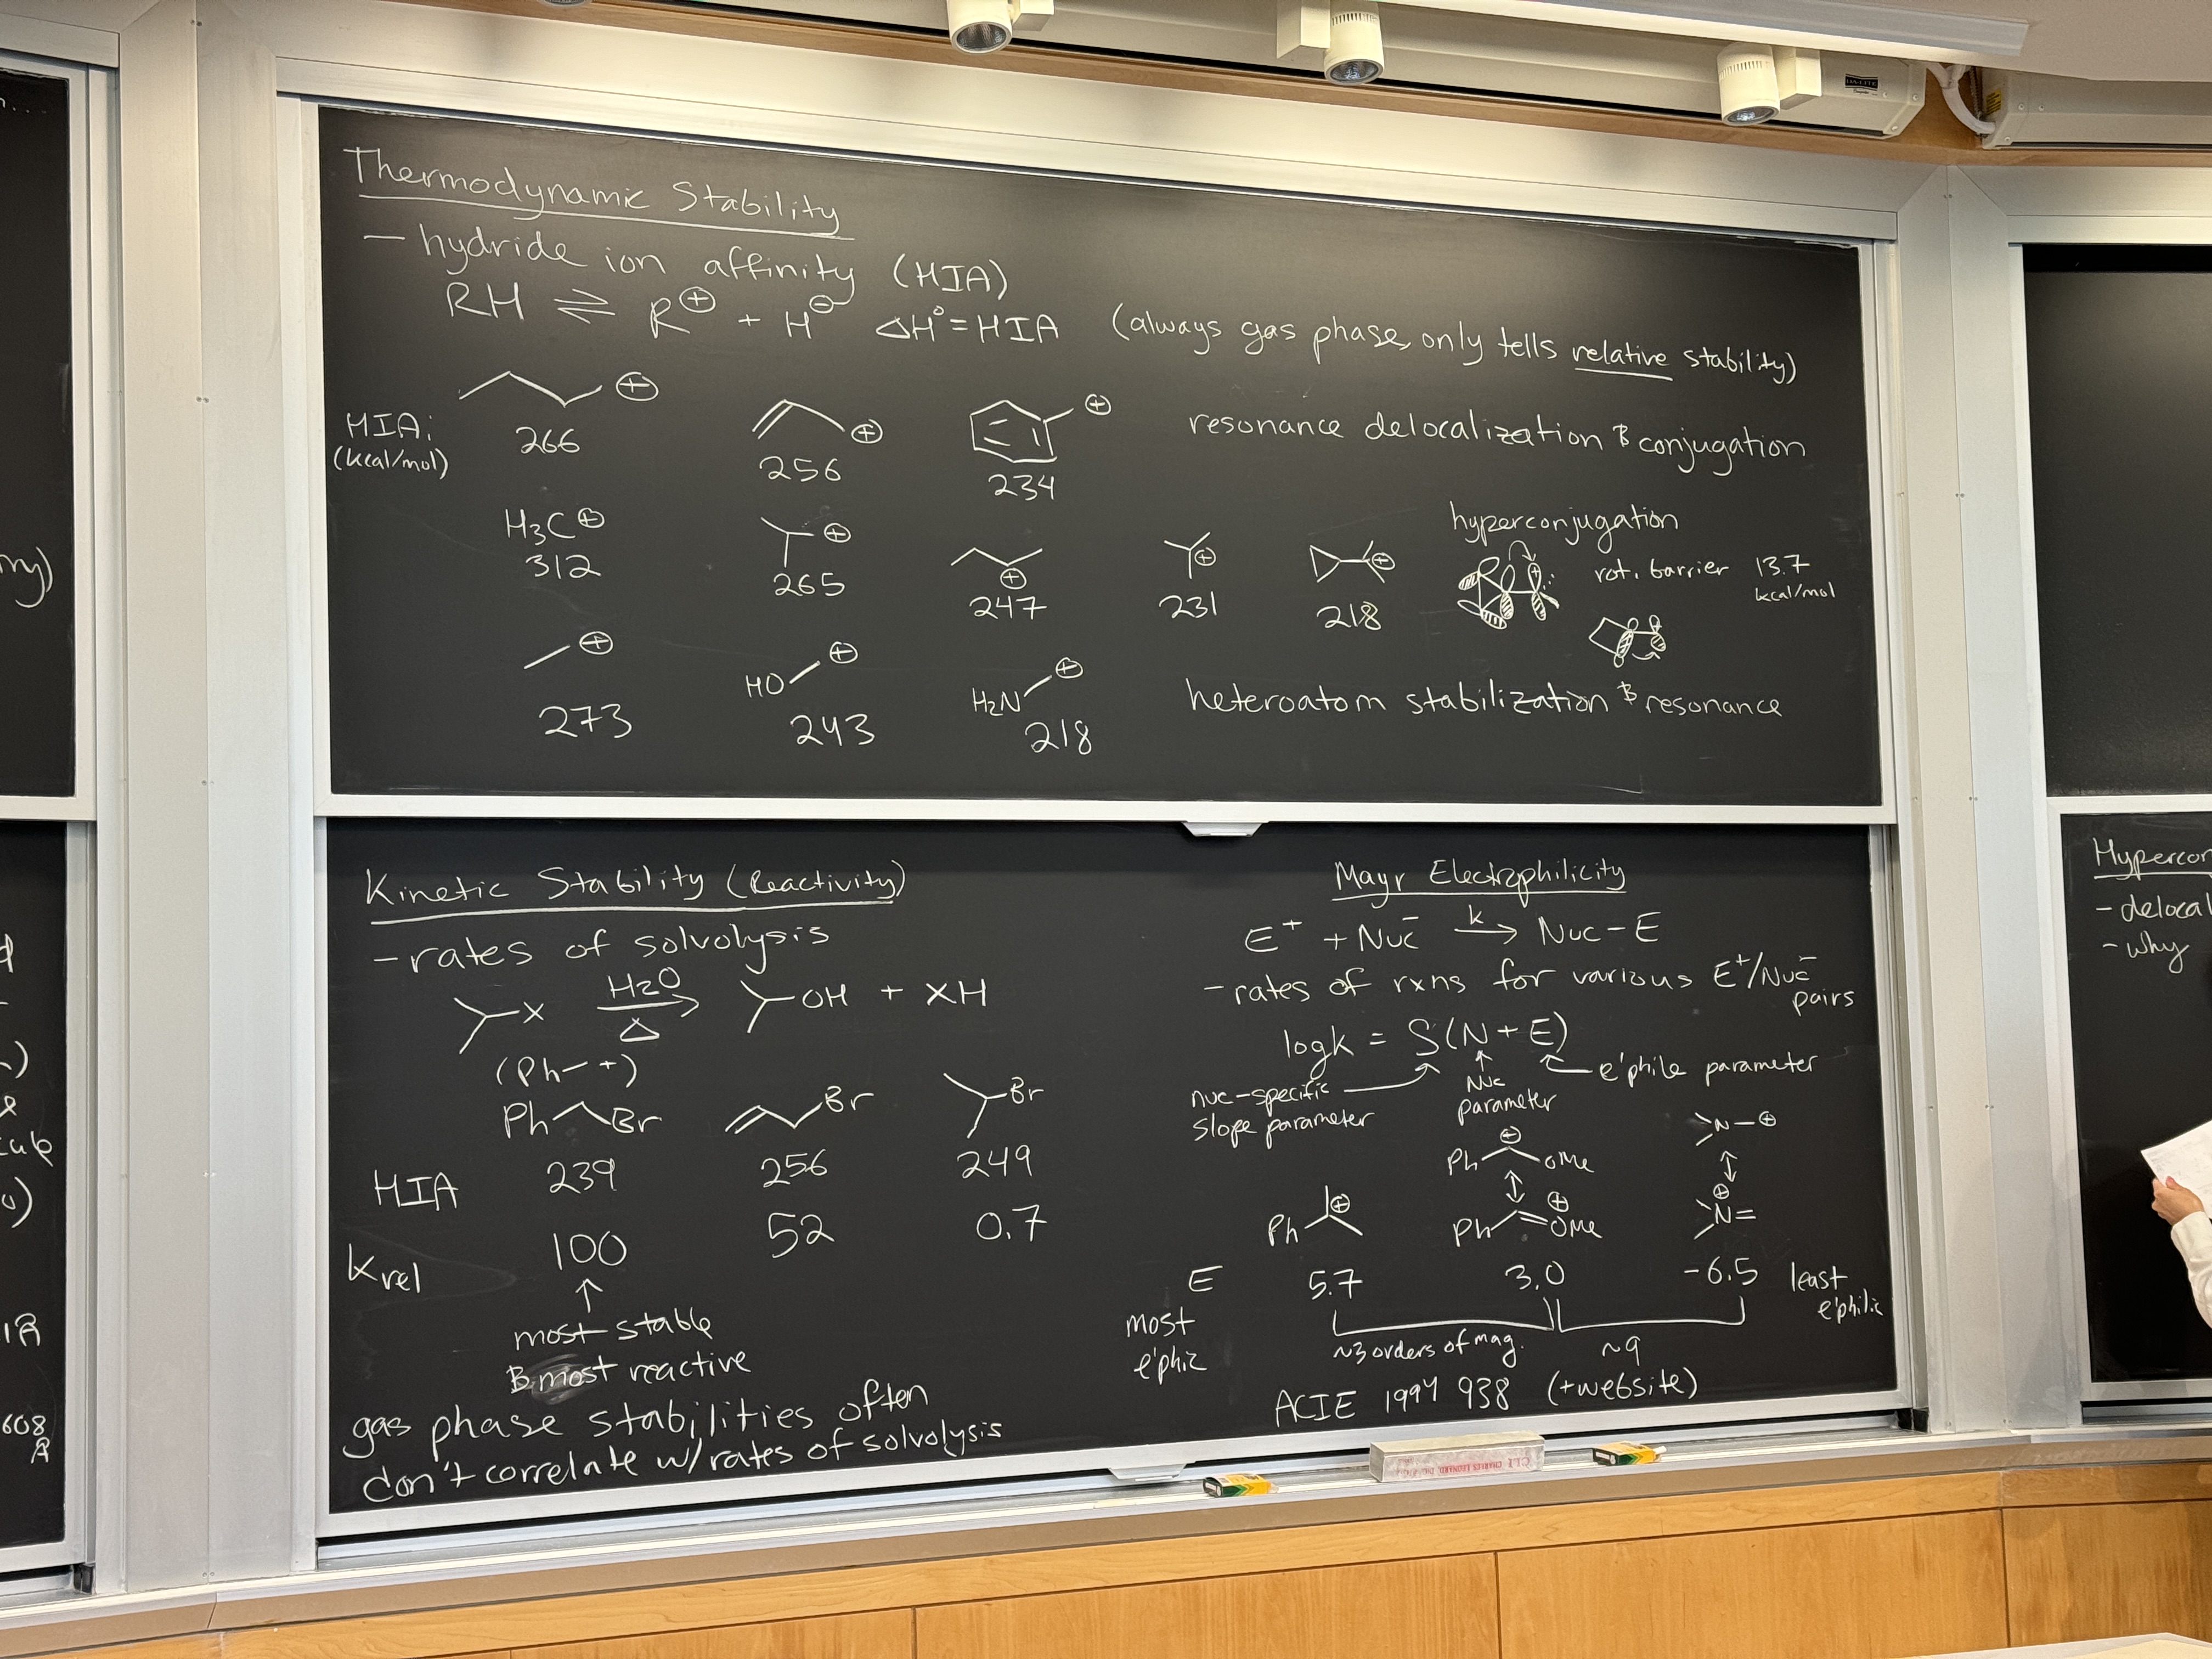 Thermodynamic Stability
– hydride ion affinity (HIA)
RH ⇌ R⊕ + H⊖ ΔH° = HIA (always gas phase, only tells relative stability)
HIA:
(kcal/mol)
⊕
266
⊕
256
⊕
234
resonance delocalization & conjugation
H3C⊕
312
⊕
265
⊕
247
⊕
231
⊕
218
hyperconjugation
rot. barrier 13.7
kcal/mol
⊕
273
HO ⊕
243
H2N ⊕
218
heteroatom stabilization & resonance
Kinetic Stability (Reactivity)
– rates of solvolysis
X H2O → OH + XH
Δ
(Ph–+)
Ph Br
Br
Br
HIA 239 256 249
Krel 100 52 0.7
↑
most stable
& most reactive
gas phase stabilities often
don't correlate w/ rates of solvolysis
Mayr Electrophilicity
E+ + Nuc– k → Nuc–E
– rates of rxns for various E+/Nuc–
pairs
log k = S(N + E)
nuc-specific
slope parameter
Nuc
parameter
e'phile parameter
Ph ⊕
Ph ⊕ OMe
↕
Ph ⊕ OMe
N–⊕
↕
⊕
N=
E 5.7 3.0 -6.5
most
e'philic
least
e'philic
~3 orders of mag.
~9
ACIE 1994 938 (+website)
Hypercon
– delocal
– why
608
Å